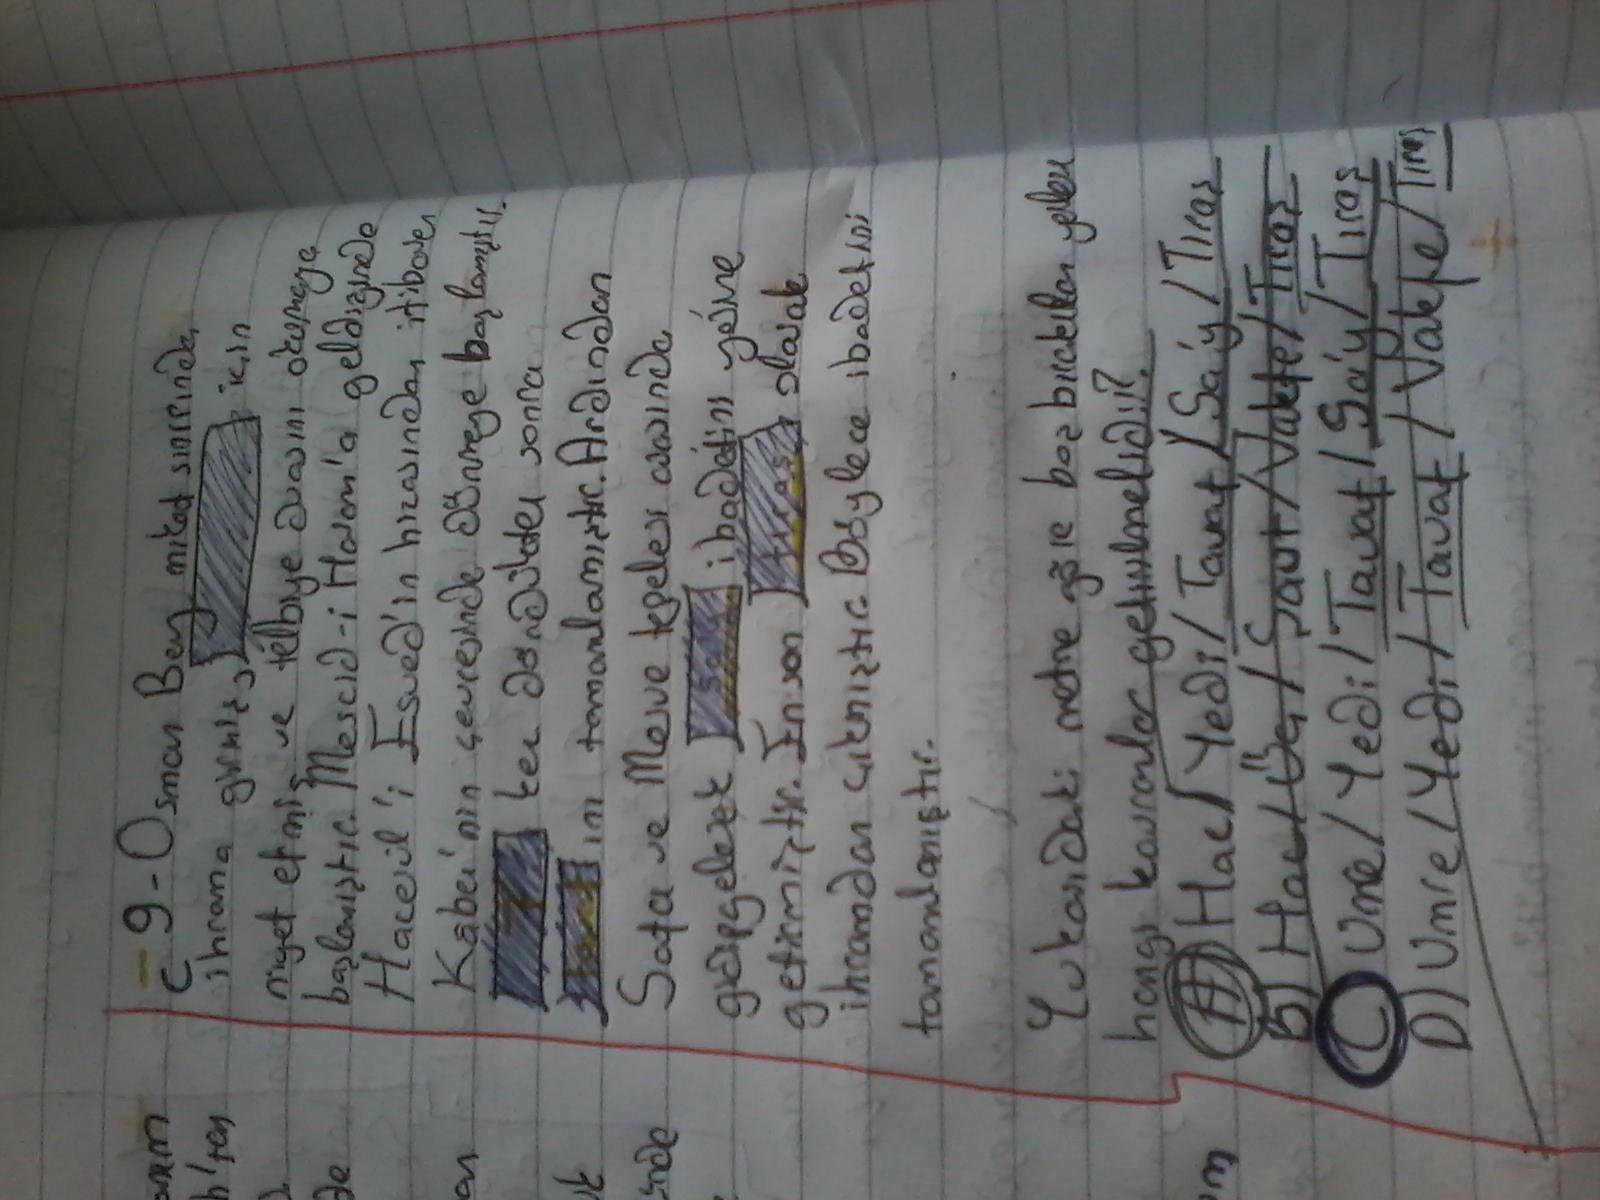 C 9-Osman Bey mikat sınırında
ihrama girmiş için
niyet etmiş ve telbiye duasını okumaya
başlamıştır. Mescid-i Haram'a geldiğinde
Hacerü'l Esved'in hizasından itibaren
Kâbe'nin çevresinde dönmeye başlamıştır.
7 kez döndükten sonra
tavaf ın tamamlamıştır. Ardından
Safa ve Merve tepeleri arasında
gidip gelerek say ibadetini yerine
getirmiştir. En son tıraş olarak
ihramdan çıkmıştır. Böylece ibadetini
tamamlamıştır.
Yukarıdaki metne göre boş bırakılan yerlere
hangi kavramlar getirilmelidir?
A) Hac / Yedi / Tavaf / Sa'y / Tıraş
B) Hac / Üç / Vakfe / Tıraş
C) Umre / Yedi / Tavaf / Sa'y / Tıraş
D) Umre / Yedi / Tavaf / Vakfe / Tıraş
anım
de
an
uk
sinde
ım